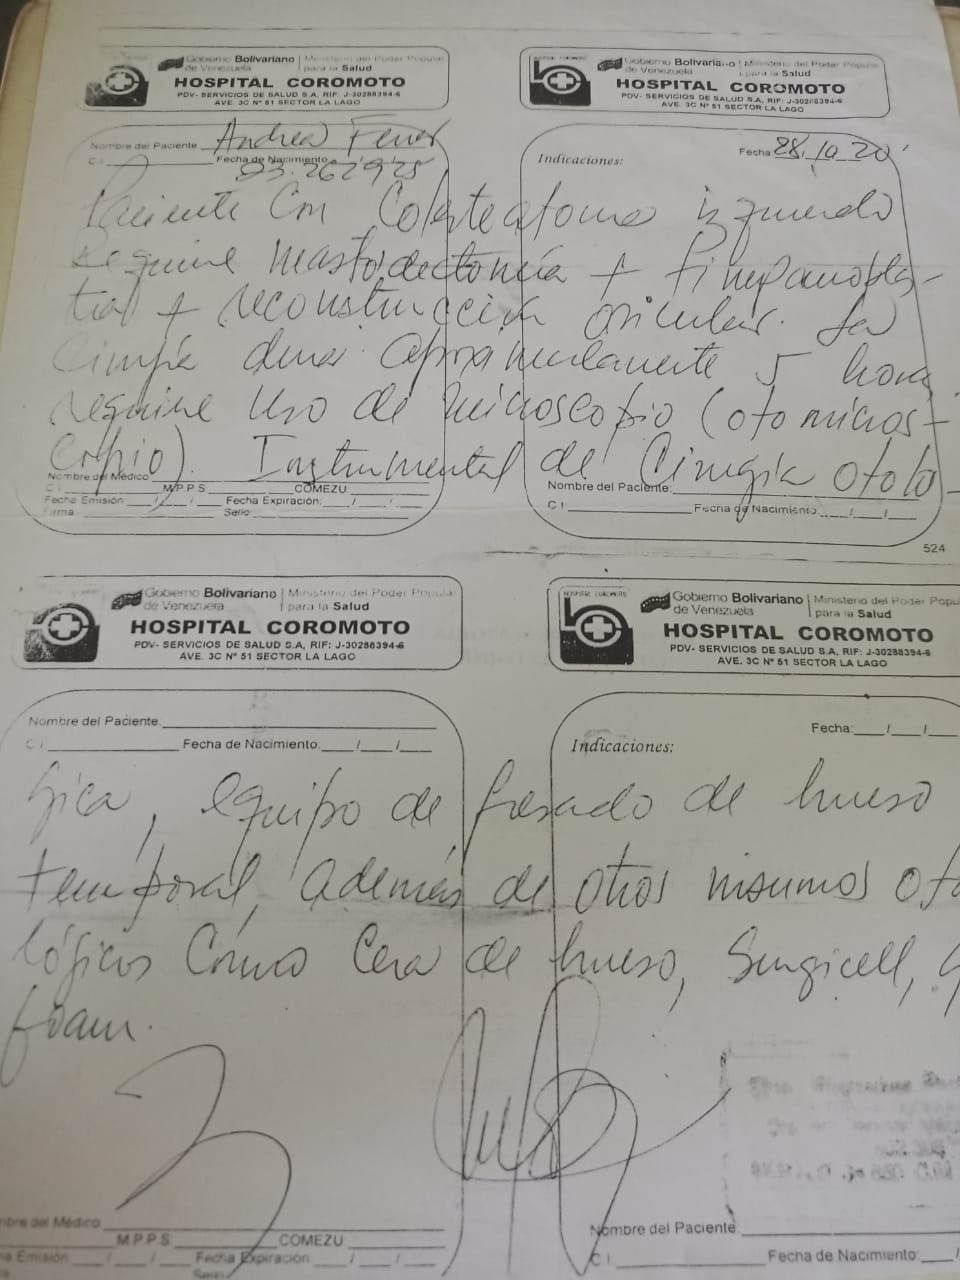 Gobierno Bolivariano de Venezuela | Ministerio del Poder Popular para la Salud
HOSPITAL COROMOTO
PDV- SERVICIOS DE SALUD S.A, RIF: J-30288394-6
AVE. 3C Nº 51 SECTOR LA LAGO
Gobierno Bolivariano de Venezuela | Ministerio del Poder Popular para la Salud
HOSPITAL COROMOTO
PDV- SERVICIOS DE SALUD S.A, RIF: J-30288394-6
AVE. 3C Nº 51 SECTOR LA LAGO
Nombre del Paciente Andrea Ferrer
C I Fecha de Nacimiento
Indicaciones: Fecha 28/10/20
Paciente con Colesteatoma izquierdo
Requiere mastoidectomía + timpanoplas-
tia + reconstrucción osicular. La
Cirugía dura aproximadamente 5 horas
requiere uso de microscopio (otomicros-
copio). Instrumental de Cirugía otoló-
Nombre del Médico
C I M.P.P.S COMEZU
Fecha Emisión / / Fecha Expiración: / /
Firma Sello:
Nombre del Paciente:
C I: Fecha de Nacimiento / /
524
Gobierno Bolivariano de Venezuela | Ministerio del Poder Popular para la Salud
HOSPITAL COROMOTO
PDV- SERVICIOS DE SALUD S.A, RIF: J-30288394-6
AVE. 3C Nº 51 SECTOR LA LAGO
Gobierno Bolivariano de Venezuela | Ministerio del Poder Popu para la Salud
HOSPITAL COROMOTO
PDV- SERVICIOS DE SALUD S.A, RIF: J-30288394-6
AVE. 3C Nº 51 SECTOR LA LAGO
Nombre del Paciente:
C I Fecha de Nacimiento: / /
Indicaciones: Fecha: / /
gica, equipo de fresado de hueso
temporal, además de otros insumos oto
lógicos como Cera de hueso, Surgicell, G
foam.
mbre del Médico
M.P.P.S COMEZU
ha Emisión / / Fecha Expiración: / /
Nombre del Paciente:
C I Fecha de Nacimiento: / /